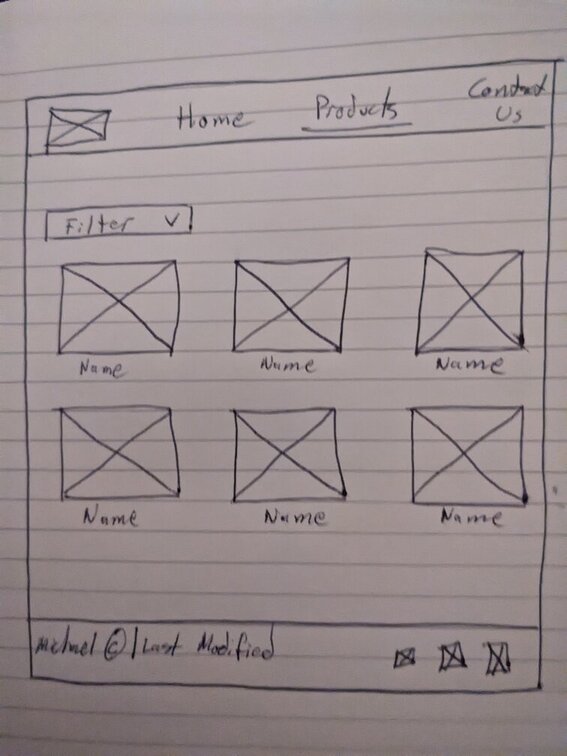 Home Products Contact Us
Filter
Name Name Name
Name Name Name
Michael © | Last Modified